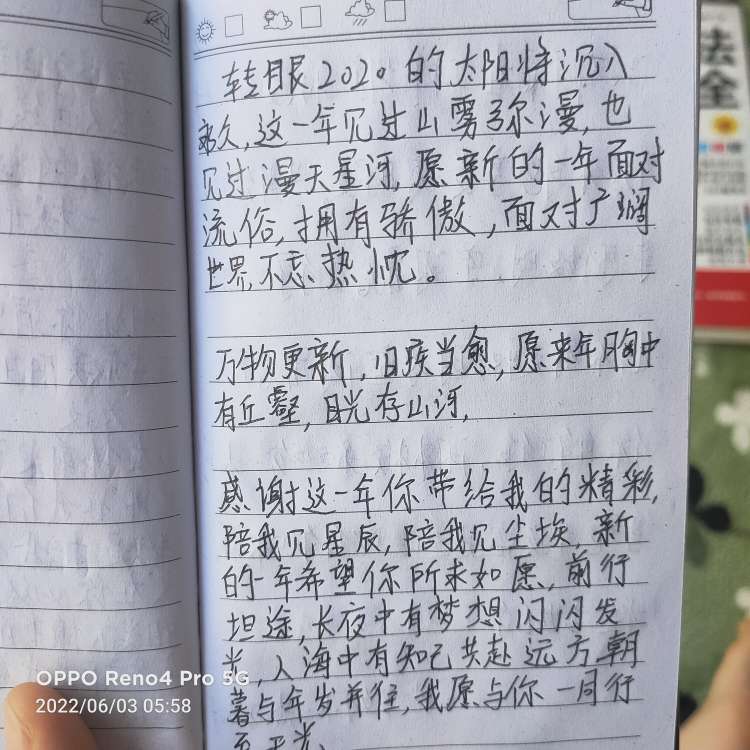 转眼2020的太阳将沉入
永久,这一年见过山雾弥漫,也
见过漫天星河,愿新的一年面对
流俗,拥有骄傲,面对广阔
世界,不忘热忱。
万物更新,旧疾当愈,愿来年胸中
有丘壑,目光存山河,
感谢这一年你带给我的精彩,
陪我见星辰,陪我见尘埃,新
的一年希望你所求如愿,前行
坦途,长夜中有梦想闪闪发
光,人海中有知己共赴远方,朝
暮与年岁并往,我愿与你一同行
至天光,
法
全
OPPO Reno4 Pro 5G
2022/06/03 05:58